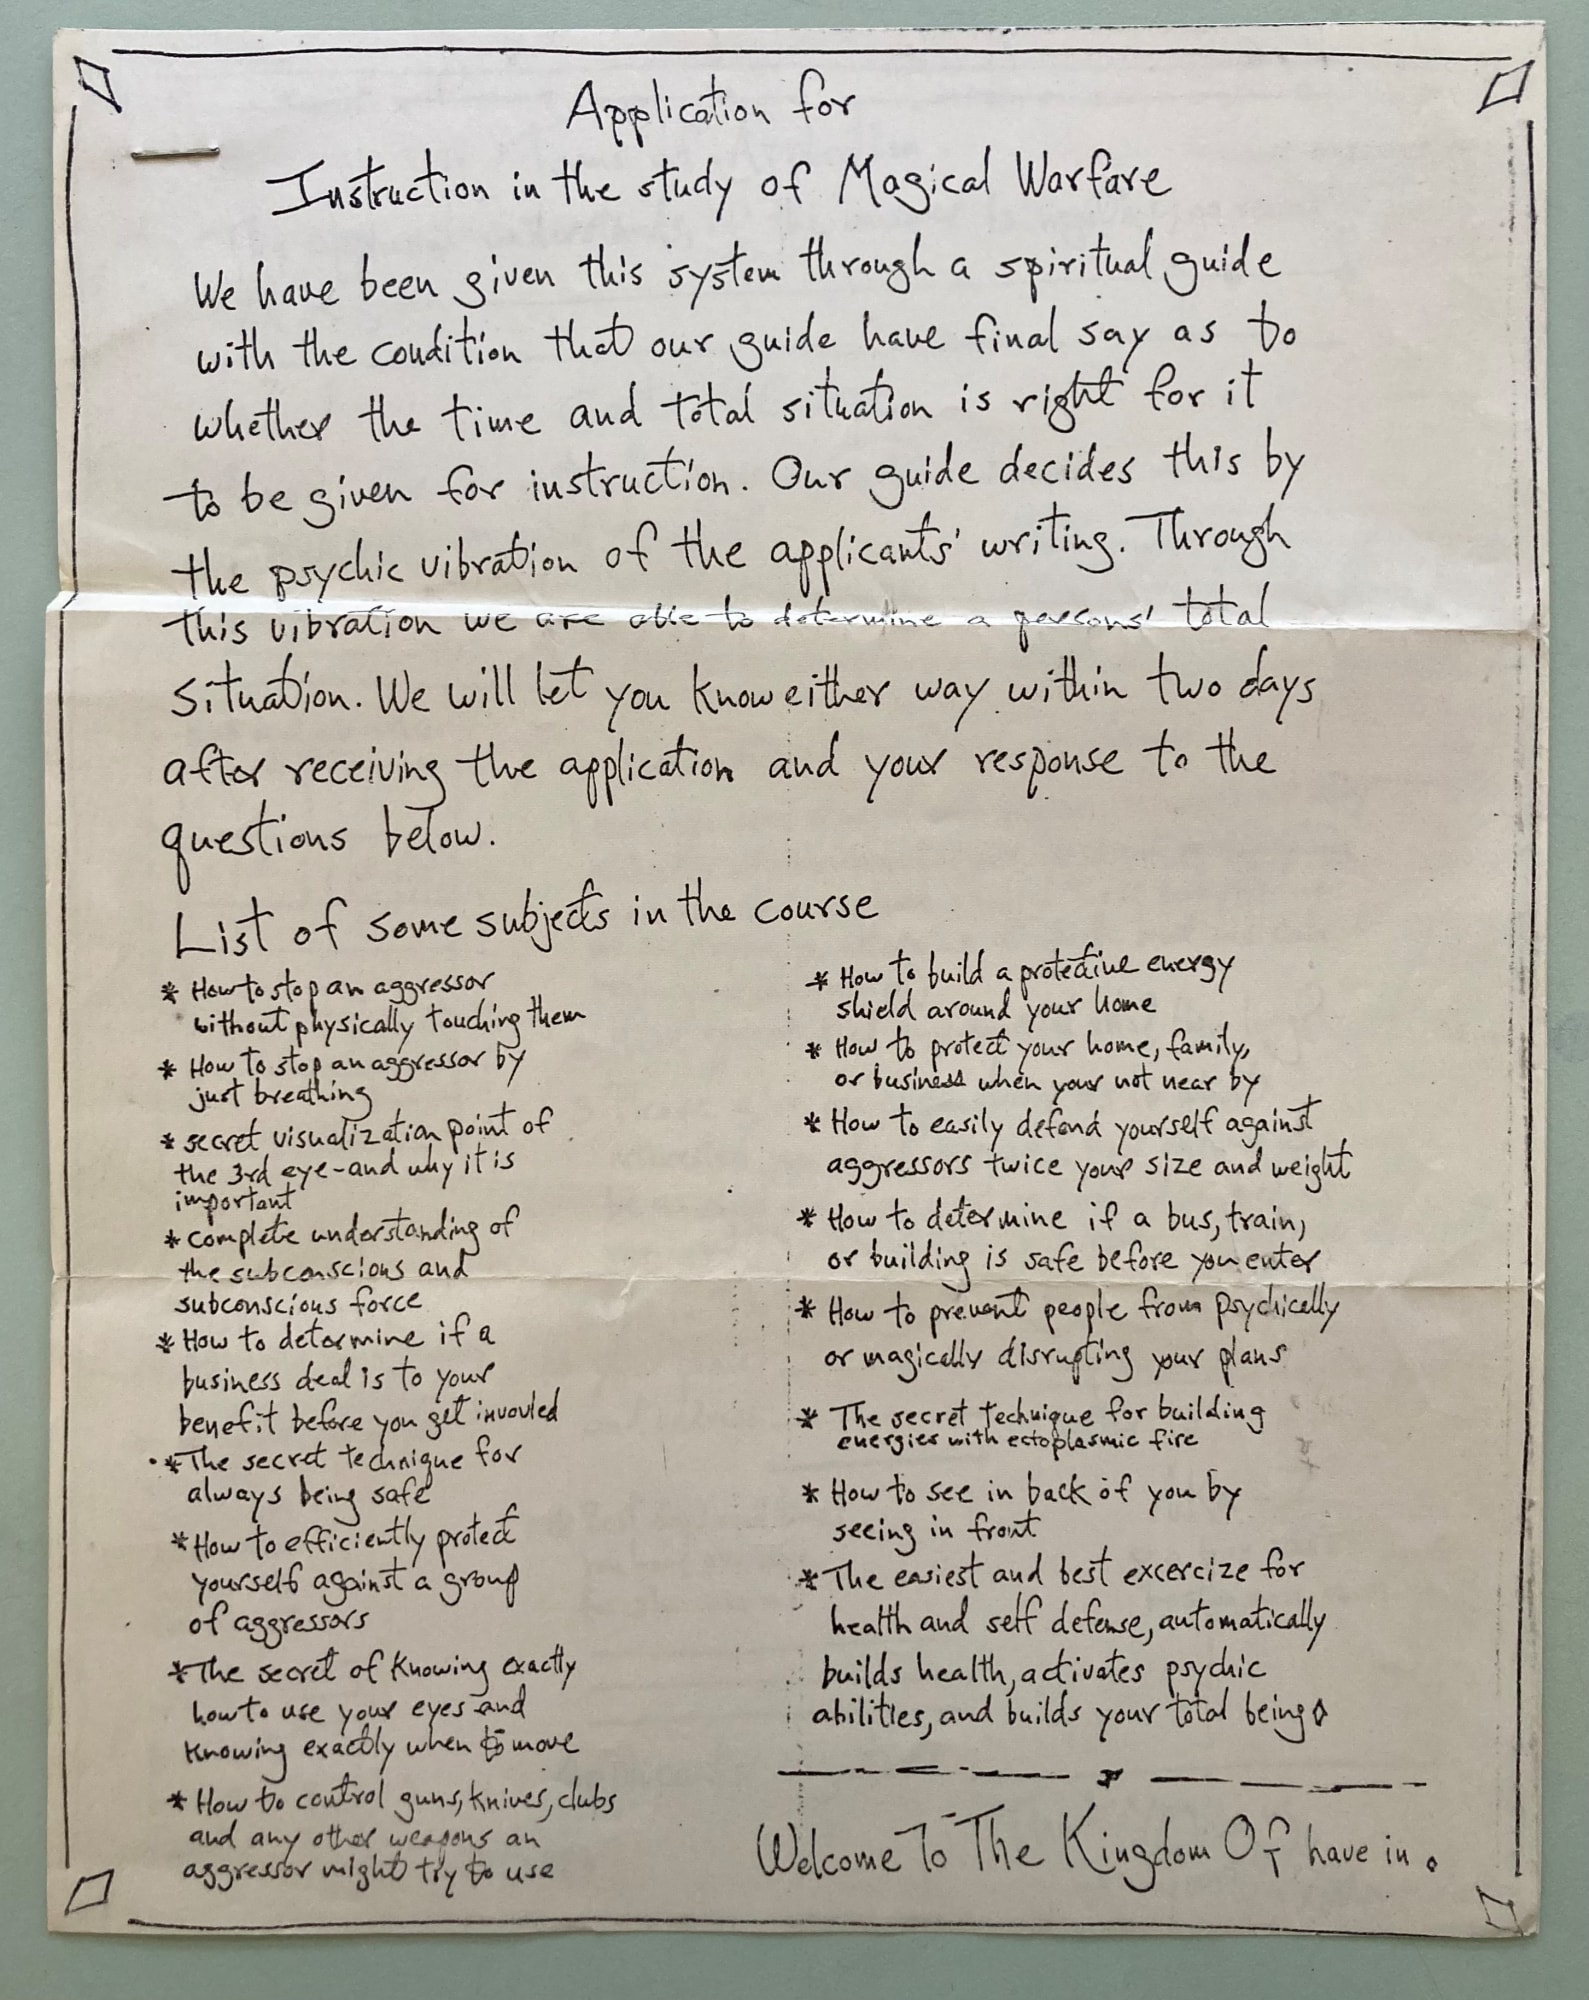 Application for
Instruction in the study of Magical Warfare
We have been given this system through a spiritual guide
with the condition that our guide have final say as to
whether the time and total situation is right for it
to be given for instruction. Our guide decides this by
the psychic vibration of the applicants' writing. Through
this vibration we are able to determine a persons' total
situation. We will let you know either way within two days
after receiving the application and your response to the
questions below.
List of some subjects in the course
* How to stop an aggressor
without physically touching them
* How to stop an aggressor by
just breathing
* secret visualization point of
the 3rd eye-and why it is
important
* complete understanding of
the subconscious and
subconscious force
* How to determine if a
business deal is to your
benefit before you get invovled
* The secret technique for
always being safe
* How to efficiently protect
yourself against a group
of aggressors
* The secret of Knowing exactly
how to use your eyes and
Knowing exactly when to move
* How to control guns, knives, clubs
and any other weapons an
aggressor might try to use
* How to build a protective energy
shield around your home
* How to protect your home, family,
or business when your not near by
* How to easily defend yourself against
aggressors twice your size and weight
* How to determine if a bus, train,
or building is safe before you enter
* How to prevent people from psychically
or magically disrupting your plans
* The secret technique for building
energies with ectoplasmic fire
* How to see in back of you by
seeing in front
* The easiest and best excercize for
health and self defense, automatically
builds health, activates psychic
abilities, and builds your total being
Welcome To The Kingdom Of have in.